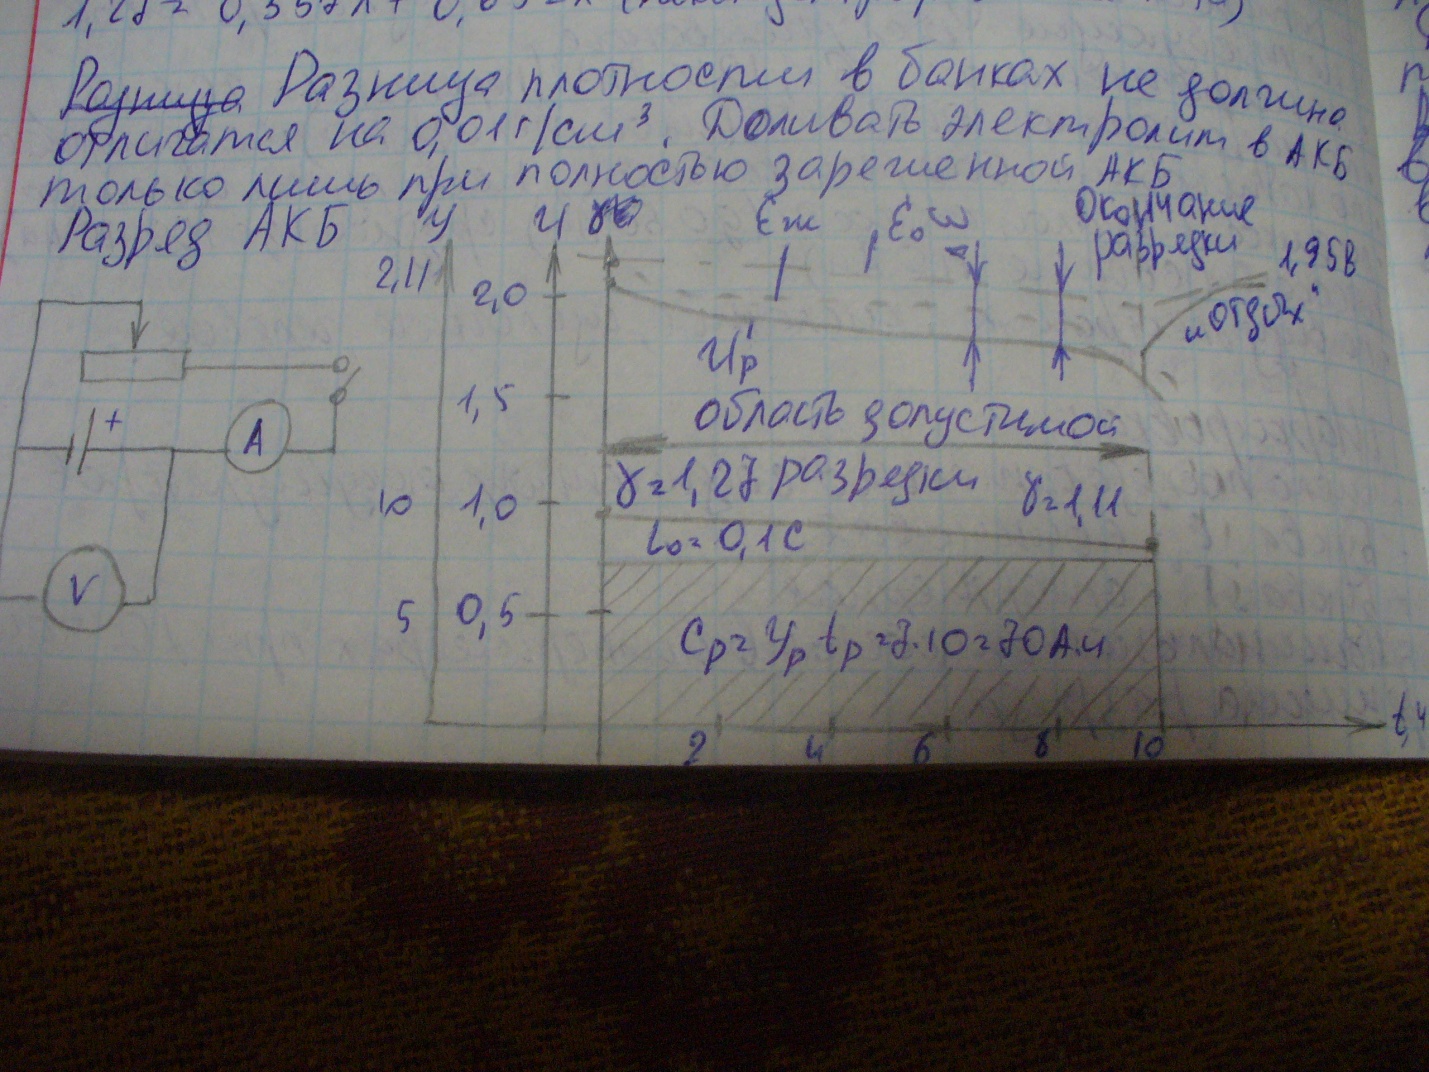 Разница Разница плотности в банках не должна
отличатся на 0,01 г/см³. Доливать электролит в АКБ
только лишь при полностью зареженной АКБ
Разряд АКБ
2,11
2,0
1,5
10 1,0
5 0,5
Окончание
разрядки
1,95В
„отдых"
Uр
область допустимой
разрядки
γ=1,27
γ=1,11
= 0,1С
Cр= Yр tр =7·10=70А.ч
+
A
V
2 4 6 8 10
t,ч